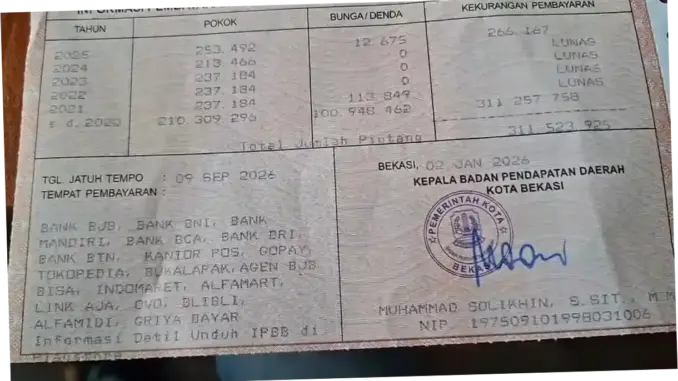 TAHUN POKOK BUNGA/DENDA KEKURANGAN PEMBAYARAN
2025 253.492 12.675 266.167
2024 213.466 0 LUNAS
2023 237.184 0 LUNAS
2022 237.184 0 LUNAS
2021 237.184 113.849 LUNAS
s d. 2020 210.309.296 100.948.462 311.257.758
Total Jumlah Piutang 311.523.925
TGL. JATUH TEMPO : 09 SEP 2026
TEMPAT PEMBAYARAN :
BANK BJB, BANK BNI, BANK
MANDIRI, BANK BCA, BANK BRI,
BANK BTN, KANTOR POS, GOPAY,
TOKOPEDIA, BUKALAPAK, AGEN BJB
BISA, INDOMARET, ALFAMART,
LINK AJA, OVO, BLIBLI,
ALFAMIDI, GRIYA BAYAR
Informasi Detil Unduh IPBB di
BEKASI, 02 JAN 2026
KEPALA BADAN PENDAPATAN DAERAH
KOTA BEKASI
PEMERINTAH KOTA
BEKASI
MUHAMMAD SOLIKHIN, S.SIT., M.M
NIP 197509101998031006